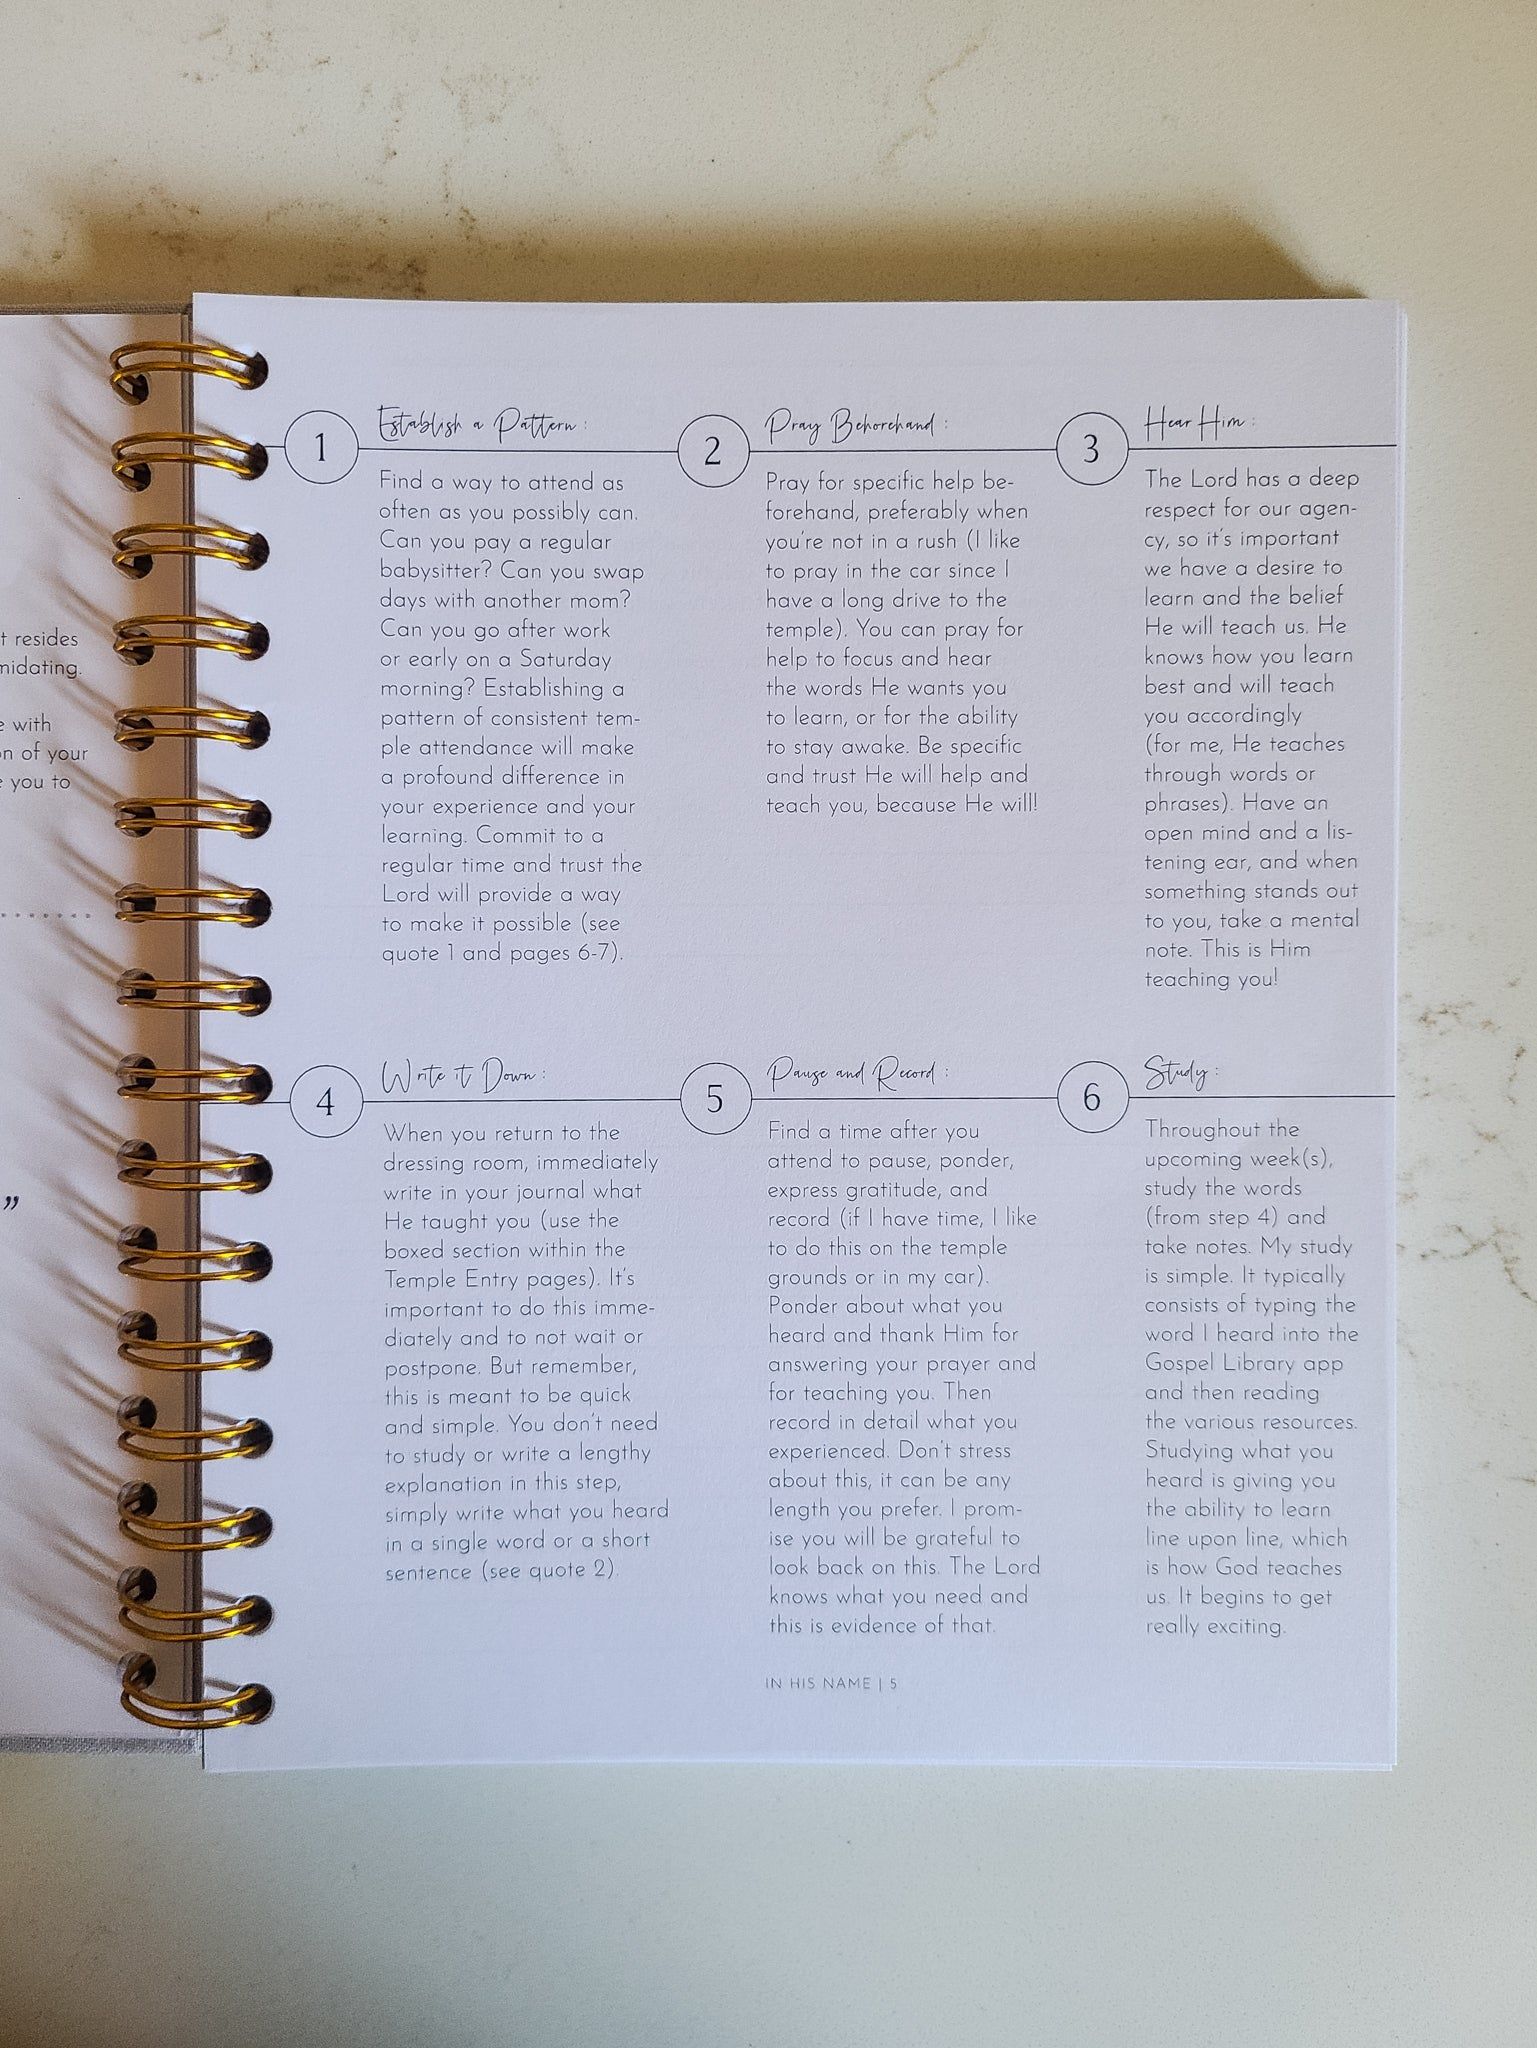 t resides
midating.
e with
on of your
e you to
”
1
Establish a Pattern:
Find a way to attend as
often as you possibly can.
Can you pay a regular
babysitter? Can you swap
days with another mom?
Can you go after work
or early on a Saturday
morning? Establishing a
pattern of consistent tem-
ple attendance will make
a profound difference in
your experience and your
learning. Commit to a
regular time and trust the
Lord will provide a way
to make it possible (see
quote 1 and pages 6-7).
2
Pray Behorehand:
Pray for specific help be-
forehand, preferably when
you're not in a rush (I like
to pray in the car since I
have a long drive to the
temple). You can pray for
help to focus and hear
the words He wants you
to learn, or for the ability
to stay awake. Be specific
and trust He will help and
teach you, because He will!
3
Hear Him:
The Lord has a deep
respect for our agen-
cy, so it's important
we have a desire to
learn and the belief
He will teach us. He
knows how you learn
best and will teach
you accordingly
(for me, He teaches
through words or
phrases). Have an
open mind and a lis-
tening ear, and when
something stands out
to you, take a mental
note. This is Him
teaching you!
4
Write it Down:
When you return to the
dressing room, immediately
write in your journal what
He taught you (use the
boxed section within the
Temple Entry pages). It's
important to do this imme-
diately and to not wait or
postpone. But remember,
this is meant to be quick
and simple. You don't need
to study or write a lengthy
explanation in this step,
simply write what you heard
in a single word or a short
sentence (see quote 2).
5
Pause and Record:
Find a time after you
attend to pause, ponder,
express gratitude, and
record (if I have time, I like
to do this on the temple
grounds or in my car).
Ponder about what you
heard and thank Him for
answering your prayer and
for teaching you. Then
record in detail what you
experienced. Don't stress
about this, it can be any
length you prefer. I prom-
ise you will be grateful to
look back on this. The Lord
knows what you need and
this is evidence of that.
6
Study:
Throughout the
upcoming week(s),
study the words
(from step 4) and
take notes. My study
is simple. It typically
consists of typing the
word I heard into the
Gospel Library app
and then reading
the various resources.
Studying what you
heard is giving you
the ability to learn
line upon line, which
is how God teaches
us. It begins to get
really exciting.
IN HIS NAME | 5